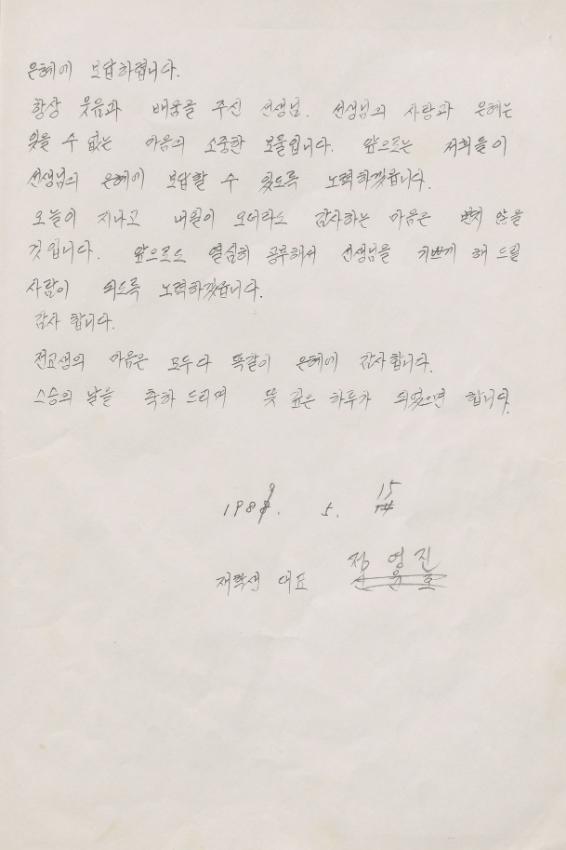 은혜에 보답하렵니다.
항상 웃음과 배움을 주신 선생님. 선생님의 사랑과 은혜는
잊을 수 없는 마음의 소중한 보물입니다. 앞으로는 저희들이
선생님의 은혜에 보답할 수 있도록 노력하겠습니다.
오늘이 지나고 내일이 오더라도 감사하는 마음은 변치 않을
것입니다. 앞으로도 열심히 공부해서 선생님을 기쁘게 해 드릴
사람이 되도록 노력하겠습니다.
감사 합니다.
전교생의 마음은 모두다 똑같이 은혜에 감사합니다.
스승의 날을 축하 드리며 뜻 깊은 하루가 되었으면 합니다.
1989. 5. 15
재학생 대표 정영진